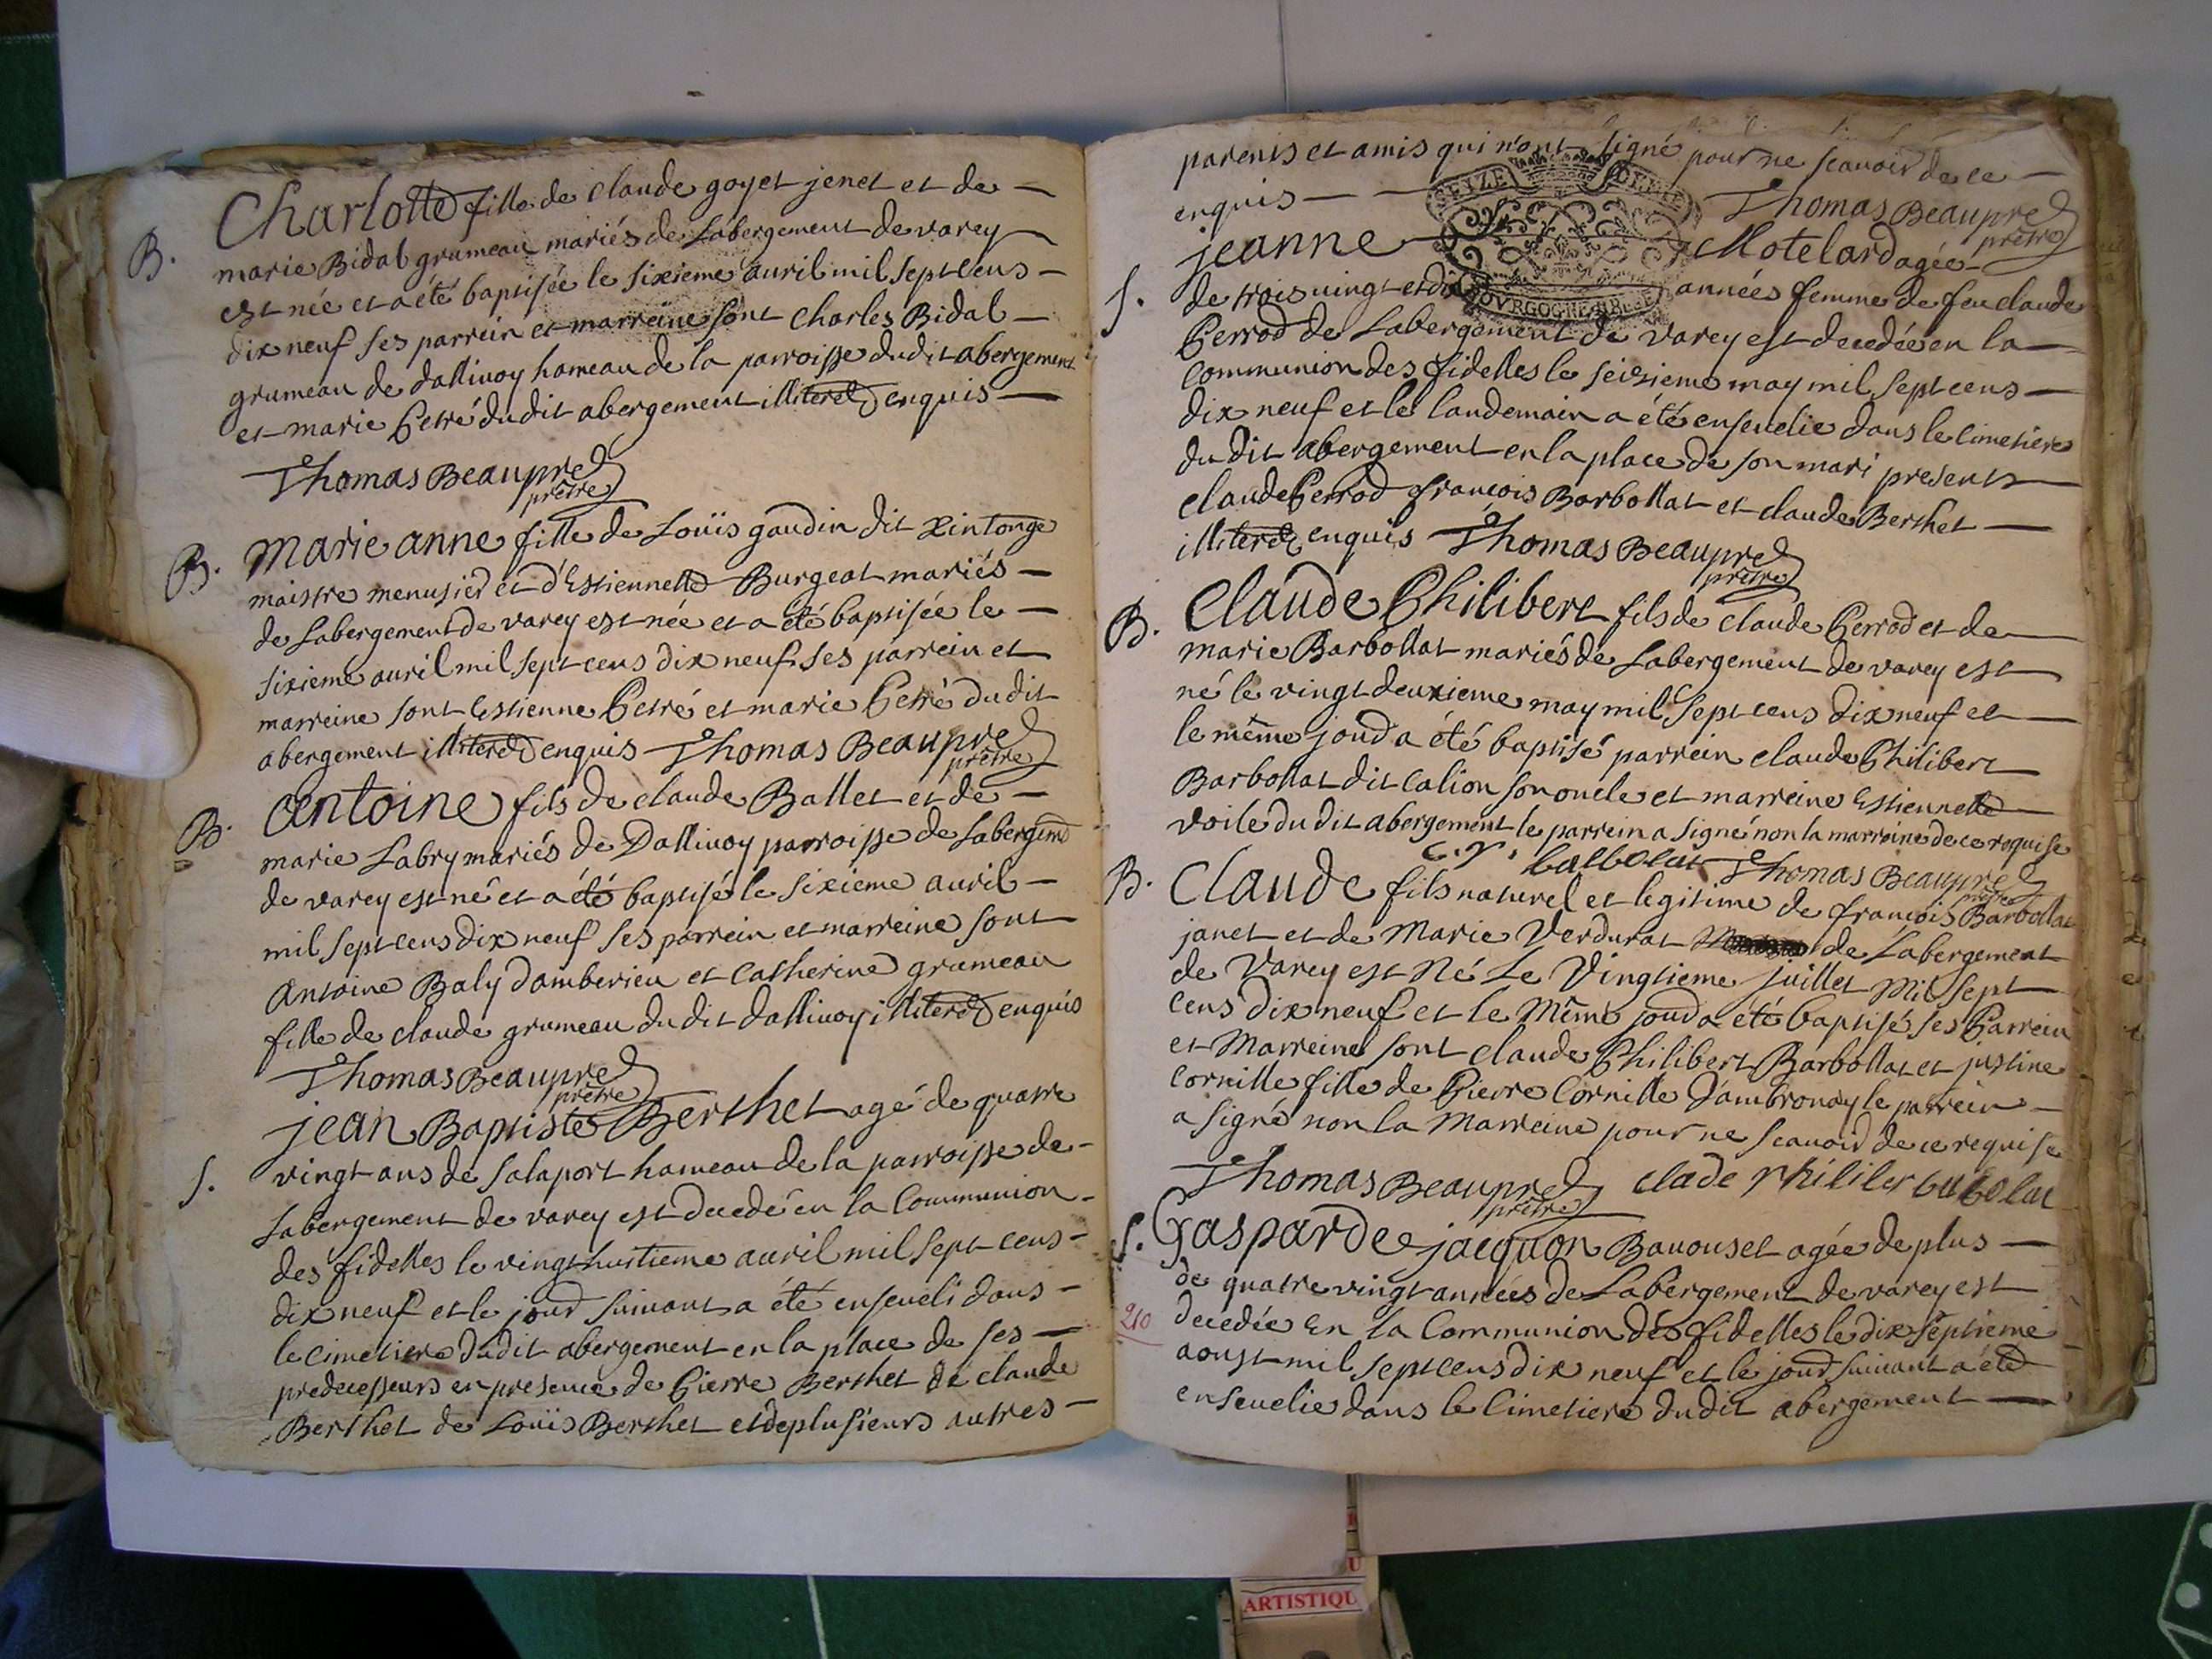 B. Charlotte fille de claude goyet jenet et de
marie Bidal grumeau mariés de Labergement de varey
est née et a été baptisée le sixieme auril mil sept cens
dix neuf ses parrein et marreine sont Charles Bidal
grumeau de dallivoy hameau de la parroisse dudit abergement
et marie Petré dudit abergement illiterez enquis
Thomas Beaupre
prêtre
B. Marie anne fille de Loüis gaudin dit Xintonge
maistre menusier et d'Estiennette Burgeat mariés
de Labergement de varey est née et a été baptisée le
sixieme auril mil sept cens dix neuf ses parrein et
marreine sont Estienne Petré et marie Petré dudit
abergement illiterez enquis Thomas Beaupre
prêtre
B. Antoine fils de claude Ballet et de
marie Labry mariés de Dallivoy parroisse de Labergemt
de varey est né et a été baptisé le sixieme auril
mil sept cens dix neuf ses parrein et marreine sont
Antoine Baly damberieu et Catherine grumeau
fille de claude grumeau du dit dallivoy illiterez enquis
Thomas Beaupre
prêtre
jean Baptiste Berthet agé de quatre
S. vingt ans de Salaport hameau de la parroisse de
Labergement de varey est decedé en la Communion
des fidelles le vingt huitieme auril mil sept cens
dix neuf et le jour suiuant a été enseueli dans
le cimetiere dudit abergement en la place de ses
predecesseurs en presence de Pierre Berthet de claude
Berthet de Loüis Berthet et de plusieurs autres
parents et amis qui n'ont signé pour ne scauoir de ce
enquis Thomas Beaupre
prêtre
SEIZE DENIE
BOVRGOGNE
jeanne Motelard agée
S. de trois vingt et dix années femme de feu claude
Perrod de Labergement de varey est decedée en la
Communion des fidelles le seizieme may mil sept cens
dix neuf et le landemain a été enseuelie dans le cimetiere
du dit abergement en la place de son mari presents
claude Perrod francois Barbollat et claude Berthet
illiterez enquis Thomas Beaupre
prêtre
B. Claude Philibert fils de claude Perrod et de
marie Barbollat mariés de Labergement de varey est
né le vingt deuxieme may mil sept cens dix neuf et
le même jour a été baptisé parrein claude Philibert
Barbollat dit Calion son oncle et marreine Estiennette
voile du dit abergement le parrein a signé non la marreine de ce requise
c. p. balbolat Thomas Beaupre
prêtre
B. Claude fils naturel et legitime de francois Barbollat
janet et de Marie Verdurat de Labergement
de Varey est Né Le Vingtieme juillet Mil Sept
cens dix neuf et le Même jour a été baptisé ses Parrein
et Marreine sont claude Philibert Barbollat et justine
Cornille fille de Pierre Cornille d'ambronay le parrein
a signé non la Marreine pour ne scauoir de ce requise
Thomas Beaupre clade philiber balbolat
prêtre
S. Gasparde jacquon Bauouset agée de plus
de quatre vingt années de Labergement de varey est
210 decedée En la Communion des fidelles le dix septieme
aoust mil sept cens dix neuf et le jour suiuant a été
enseuelie dans le Cimetiere dudit abergement
U
ARTISTIQU